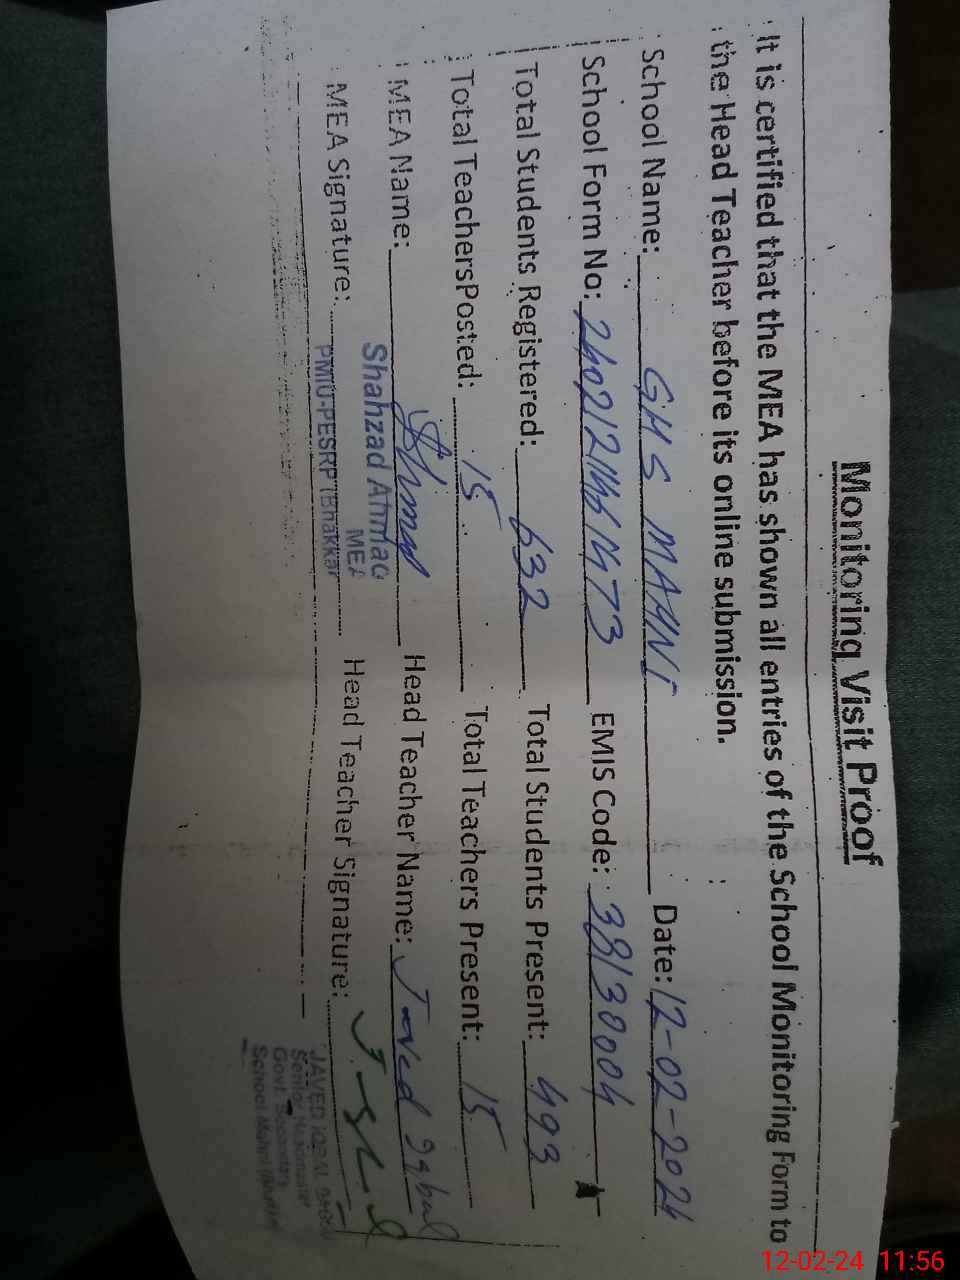 Monitoring Visit Proof
It is certified that the MEA has shown all entries of the School Monitoring Form to
the Head Teacher before its online submission.
School Name: GHS MAHNI Date: 12-02-2024
School Form No: EMIS Code: 38130004
Total Students Registered: 632 Total Students Present: 493
Total TeachersPosted: 15 Total Teachers Present: 15
MEA Name: Ahmad Head Teacher Name: Javed Iqbal
Shahzad Ahmad
MEA
MEA Signature: Head Teacher Signature:
PMIU-PESRP Bhakkar
JAVED IQBAL
Senior Headmaster
Govt. Secondary
School Mahni
12-02-24 11:56